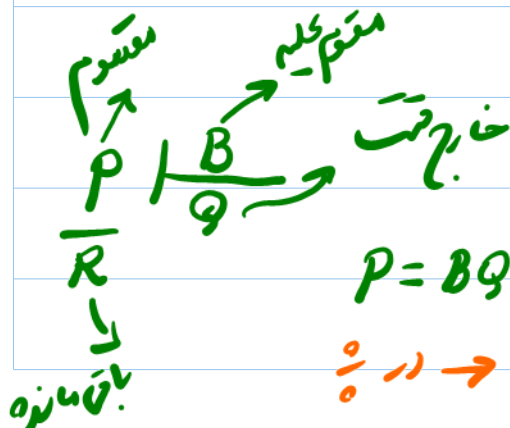 مقسوم
مقسوم علیه
P | B
Q
خارج قسمت
R
P = BQ
باقی مانده